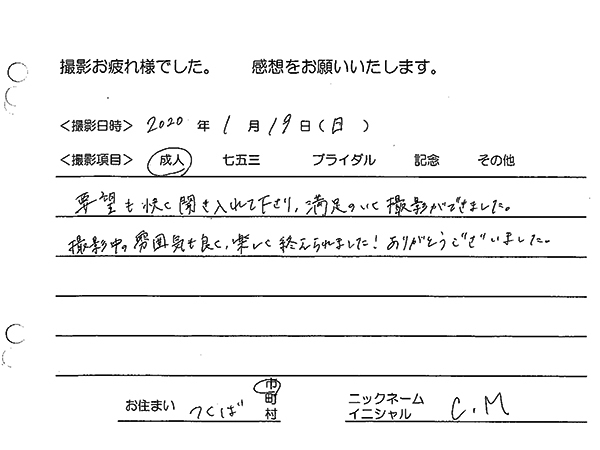 撮影お疲れ様でした。 感想をお願いいたします。
<撮影日時> 2020 年 1 月 19 日 ( 日 )
<撮影項目> 成人 七五三 ブライダル 記念 その他
要望も快く聞き入れて下さり、満足のいく撮影ができました。
撮影中の雰囲気も良く、楽しく終えられました!ありがとうございました。
お住まい つくば 市 町 村
ニックネーム イニシャル C.M